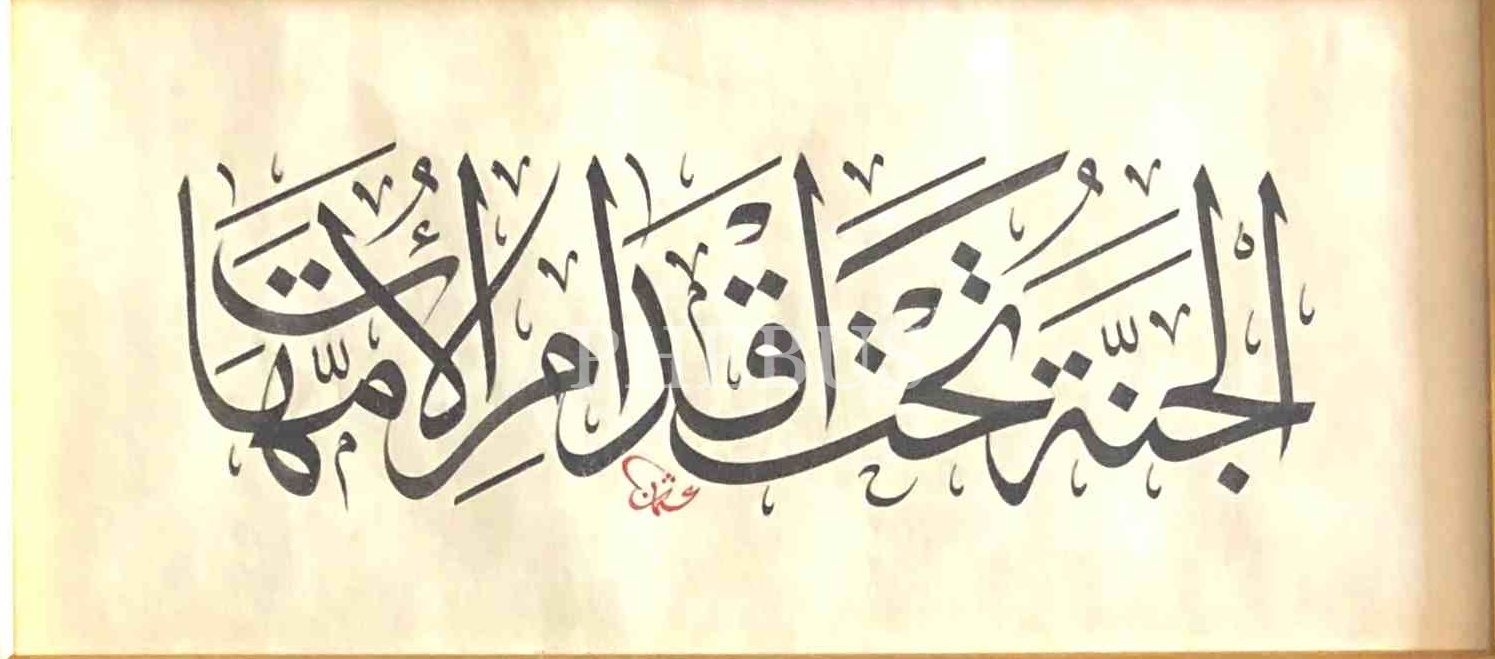 الجنّةُ تَحْتَ اَقْدَامِ الأُمّهَاتَ
عثمان
PHEBUS